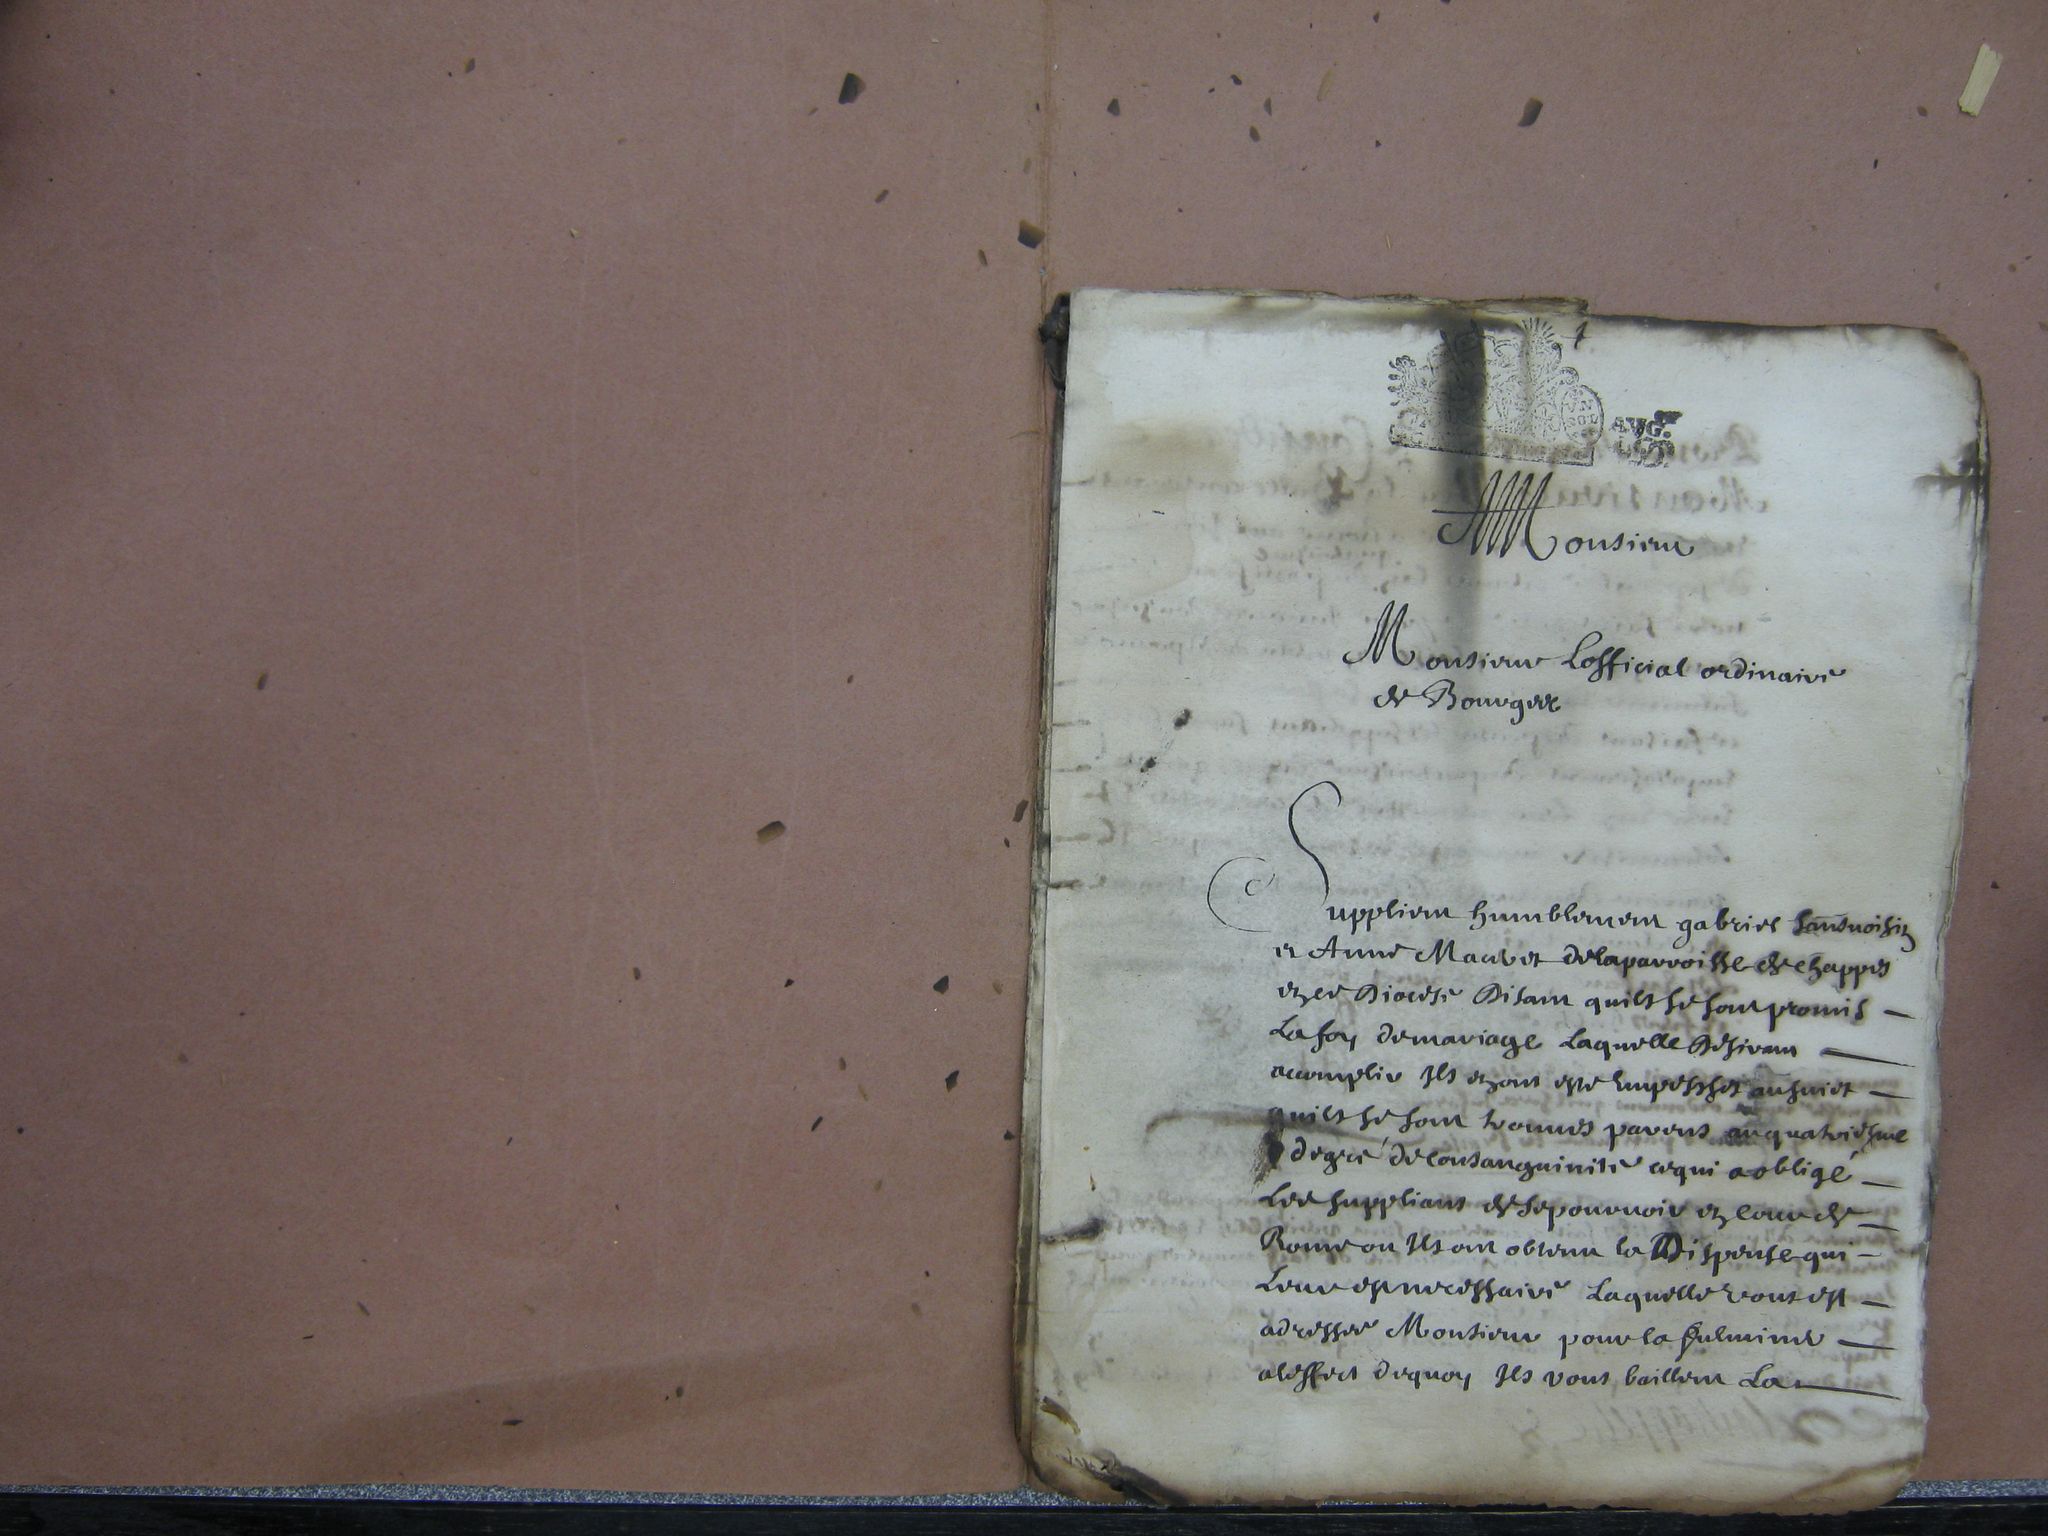 AVG.
Monsieur
Monsieur Lofficial ordinaire
de Bourges
Supplient humblement gabriel
et Anne de la parroisse de chappes
en ce Diocese Disant quils se sont promis
La foy de mariage Laquelle Desirant
acomplir Ils en ont esté Empesches au suiet
quils se sont trouues parens au quatriesme
degré de consanguinité ce qui a obligé
Les supplians de se pouruoir en cour de
Rome ou Ils ont obtenu la Dispense qui
Leur est necessaire Laquelle vous est
adressee Monsieur pour la fulminer
a leffect de quoy Ils vous baillent La